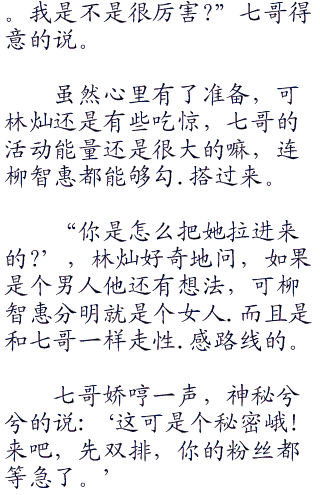 。我是不是很厉害?”七哥得
意的说。
虽然心里有了准备，可
林灿还是有些吃惊，七哥的
活动能量还是很大的嘛，连
柳智惠都能够勾.搭过来。
“你是怎么把她拉进来
的?’，林灿好奇地问，如果
是个男人他还有想法，可柳
智惠分明就是个女人.而且是
和七哥一样走性.感路线的。
七哥娇哼一声，神秘兮
兮的说:‘这可是个秘密峨!
来吧，先双排，你的粉丝都
等急了。’